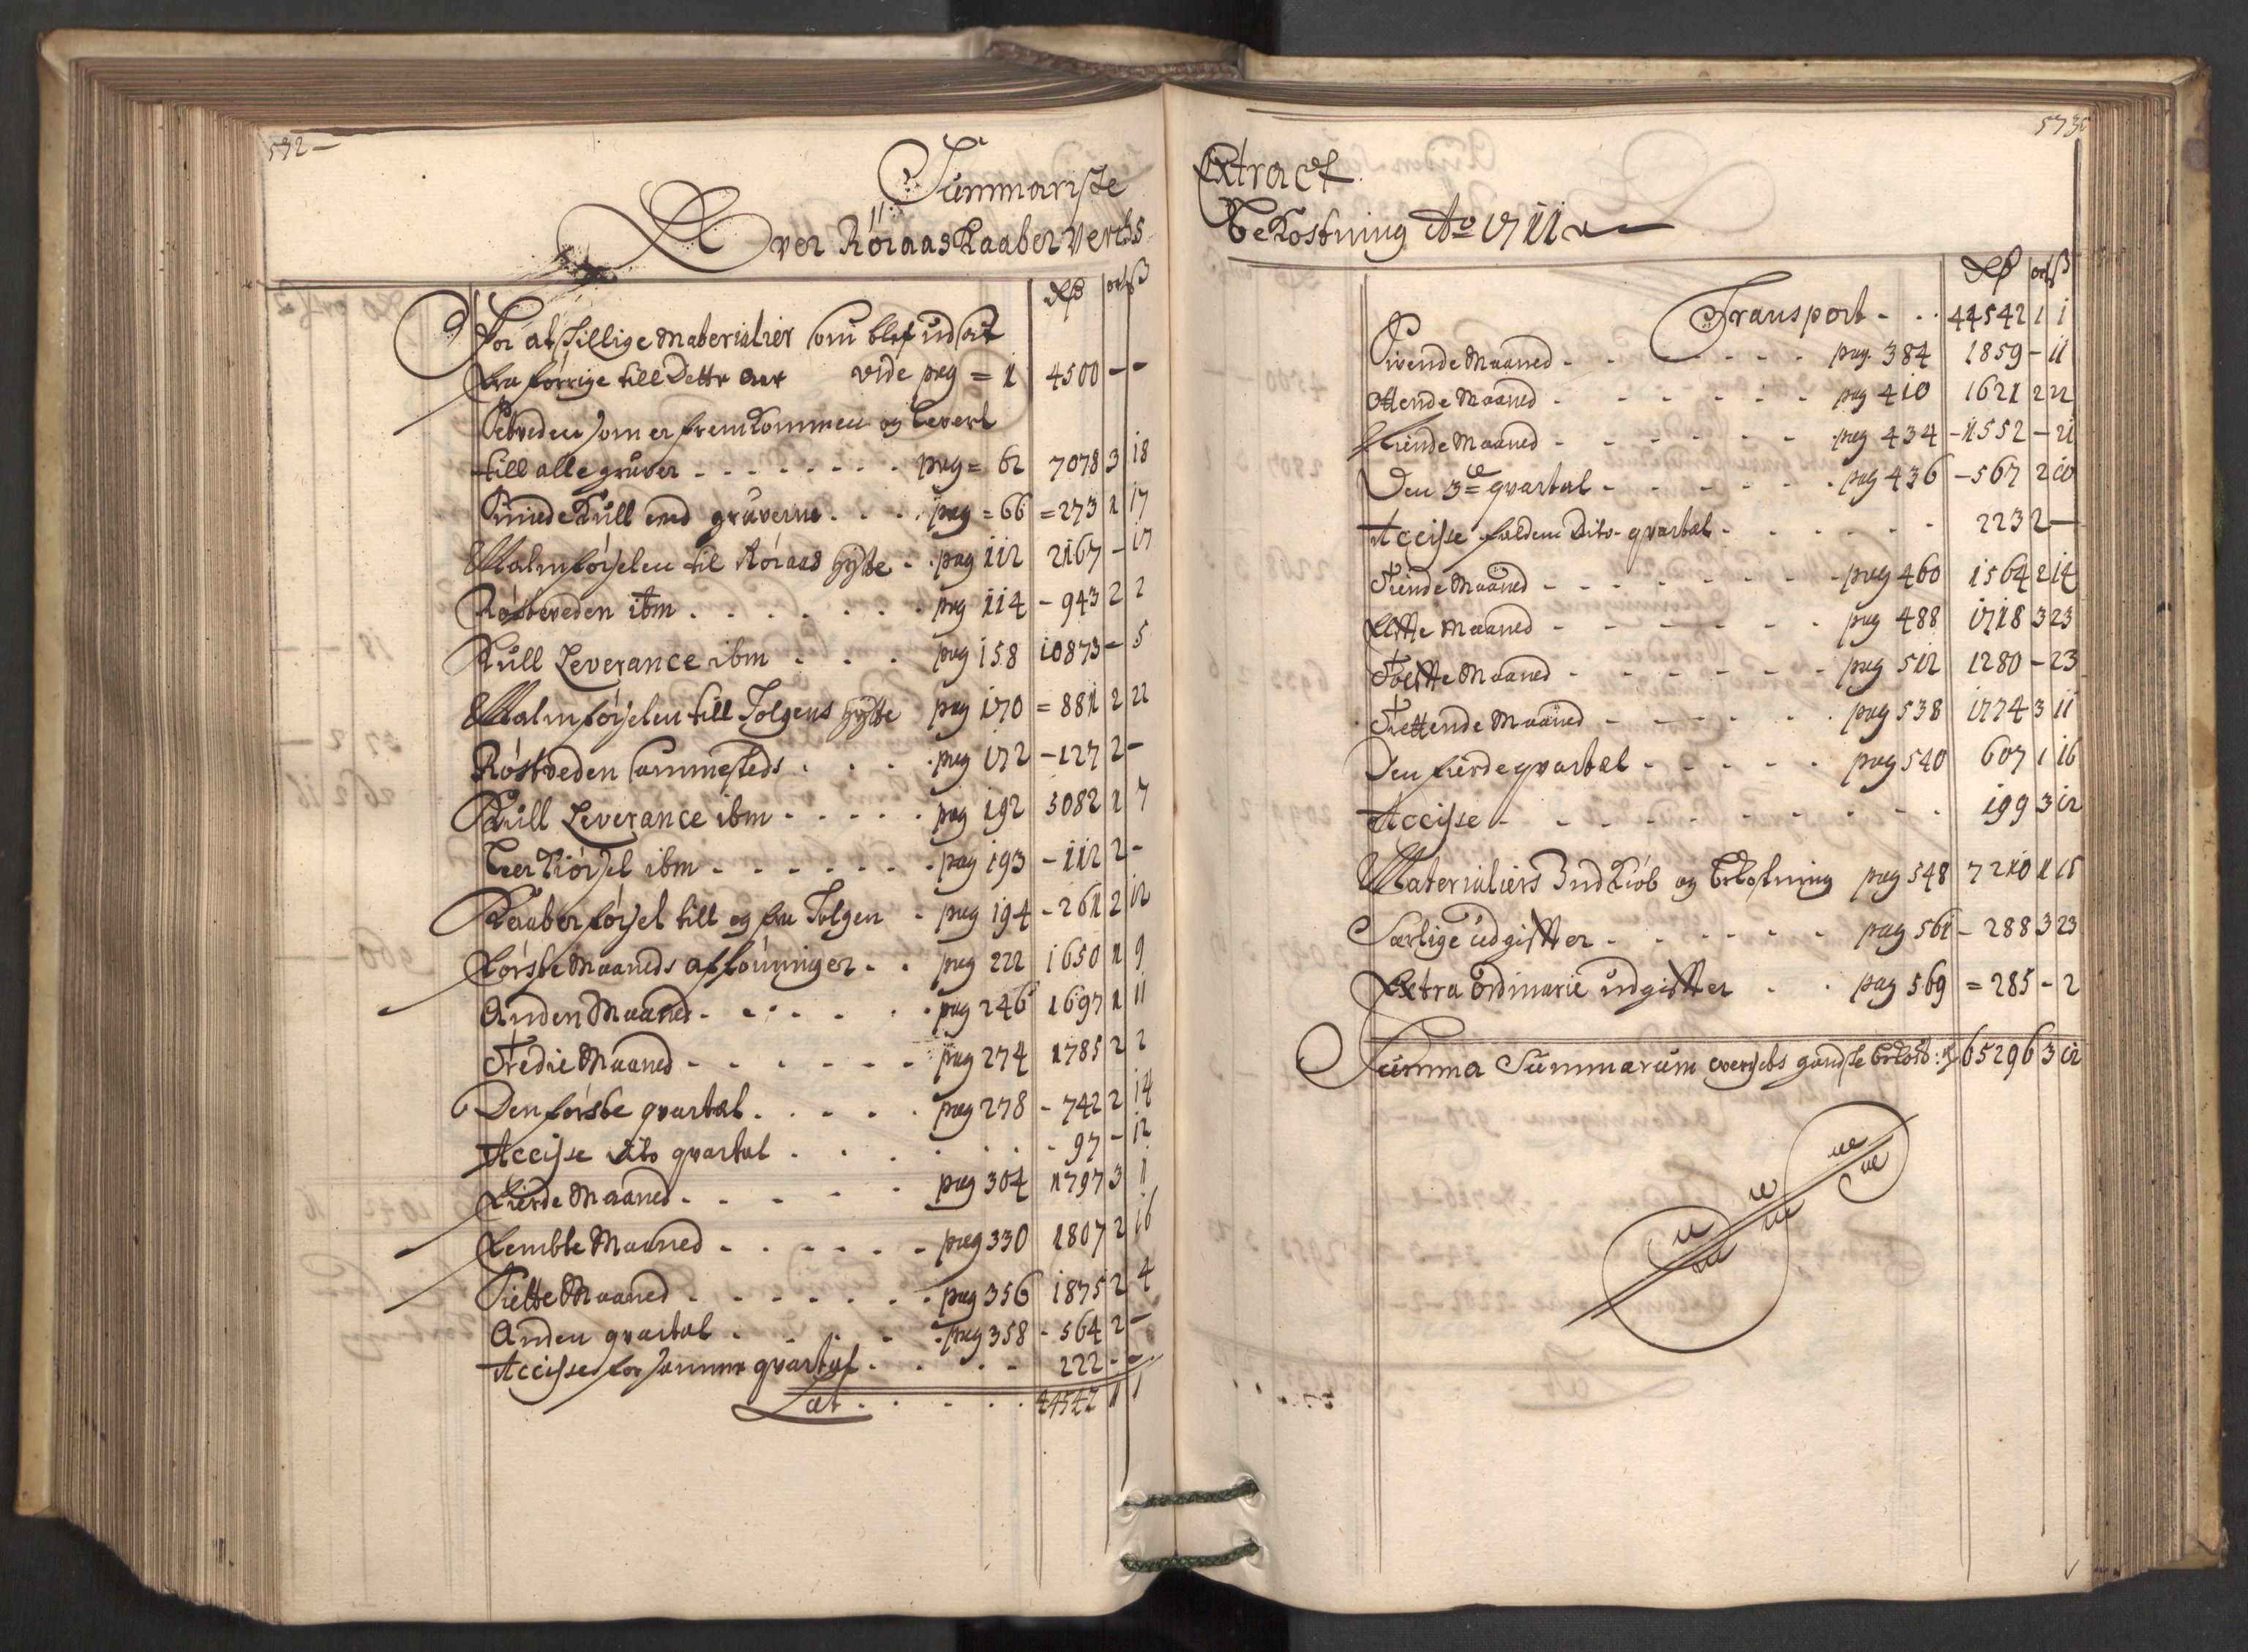 572
Summariske
Over Röraas Kaaber Verchs
Rdr ort ß
For at Tillige Materialier som blef udsat
fra forrige till Dette Aar vide pag = 1 4500 - -
Setveden som er fremkommen og levert
till alle grùver . . . . . . . pag = 62 7078 3 18
Smide Kùll med grùverne . . . . pag = 66 = 273 1 17
Malmförselen til Röraas hÿtte - . pag 112 2167 - 17
Röstveden ibm . . . . . . . pag 114 - 943 2 2
Kùll Leverance ibm . . . pag 158 10873 - 5
Malmförselen till Tolgens hÿtte pag 170 = 881 2 22
Röstveden sammesteds . . . . pag 172 - 127 2 -
Kùll Leverance ibm . . . . . pag 192 5082 1 7
Leer Kiörsel ibm . . . . . . . pag 193 - 112 2 -
Kaaber försel till og fra Tolgen - pag 194 - 261 2 12
Förste Maaneds aflönninger . . pag 222 1650 1 9
Anden Maaned . . . . . . pag 246 1697 1 11
Tredie Maaned - - - - - - pag 274 1785 2 2
Den förste qvartal . . . . . pag 278 - 742 2 14
Accisse dito qvartal . . . . . . - 97 - 12
Fierde Maaned . . . . . pag 304 1797 3 1
Femte Maaned - . . . . - pag 330 1807 2 16
Siette Maaned . . . . . . . pag 356 1875 2 4
Anden qvartal . . . . . pag 358 - 564 2 -
Accisse for samme qvartal . . . - 222 - -
Lat . . . . . 44542 1 1
573
Extract
Bekostning Ao 1711
Rdr ort ß
Transport - . . 44542 1 1
Sivende Maaned - . . - - - - pag. 384 1859 - 11
Ottende Maaned . - - - - - - pag 410 1621 2 22
Niende Maaned - - - - - - - pag 434 - 1552 - 21
Den 3de qvartal - - - - - - . pag 436 - 567 2 10
Accisse foldem Dito qvartal - . . . . - 223 2 -
Tiende Maaned - - - - - - - - pag 460 1564 2 14
Elfte Maaned - - - - - - . pag 488 1718 3 23
Tolffte Maaned - - - - - - - pag 512 1280 - 23
Trettende Maaned - - - - - . pag 538 1774 3 11
Den fierde qvartal - - - - - . pag 540 607 1 16
Accisse - - - - - - - - - . 199 3 12
Materialiers Indkiöb og Bekostning pag 548 7210 1 15
Særlige ùdgiffter . - - - - - pag 561 - 288 3 23
Extra ordinarie ùdgiffter . . pag 569 = 285 - 2
Sùmma Sùmmarùm værchets gandske Bekost: 65296 3 12